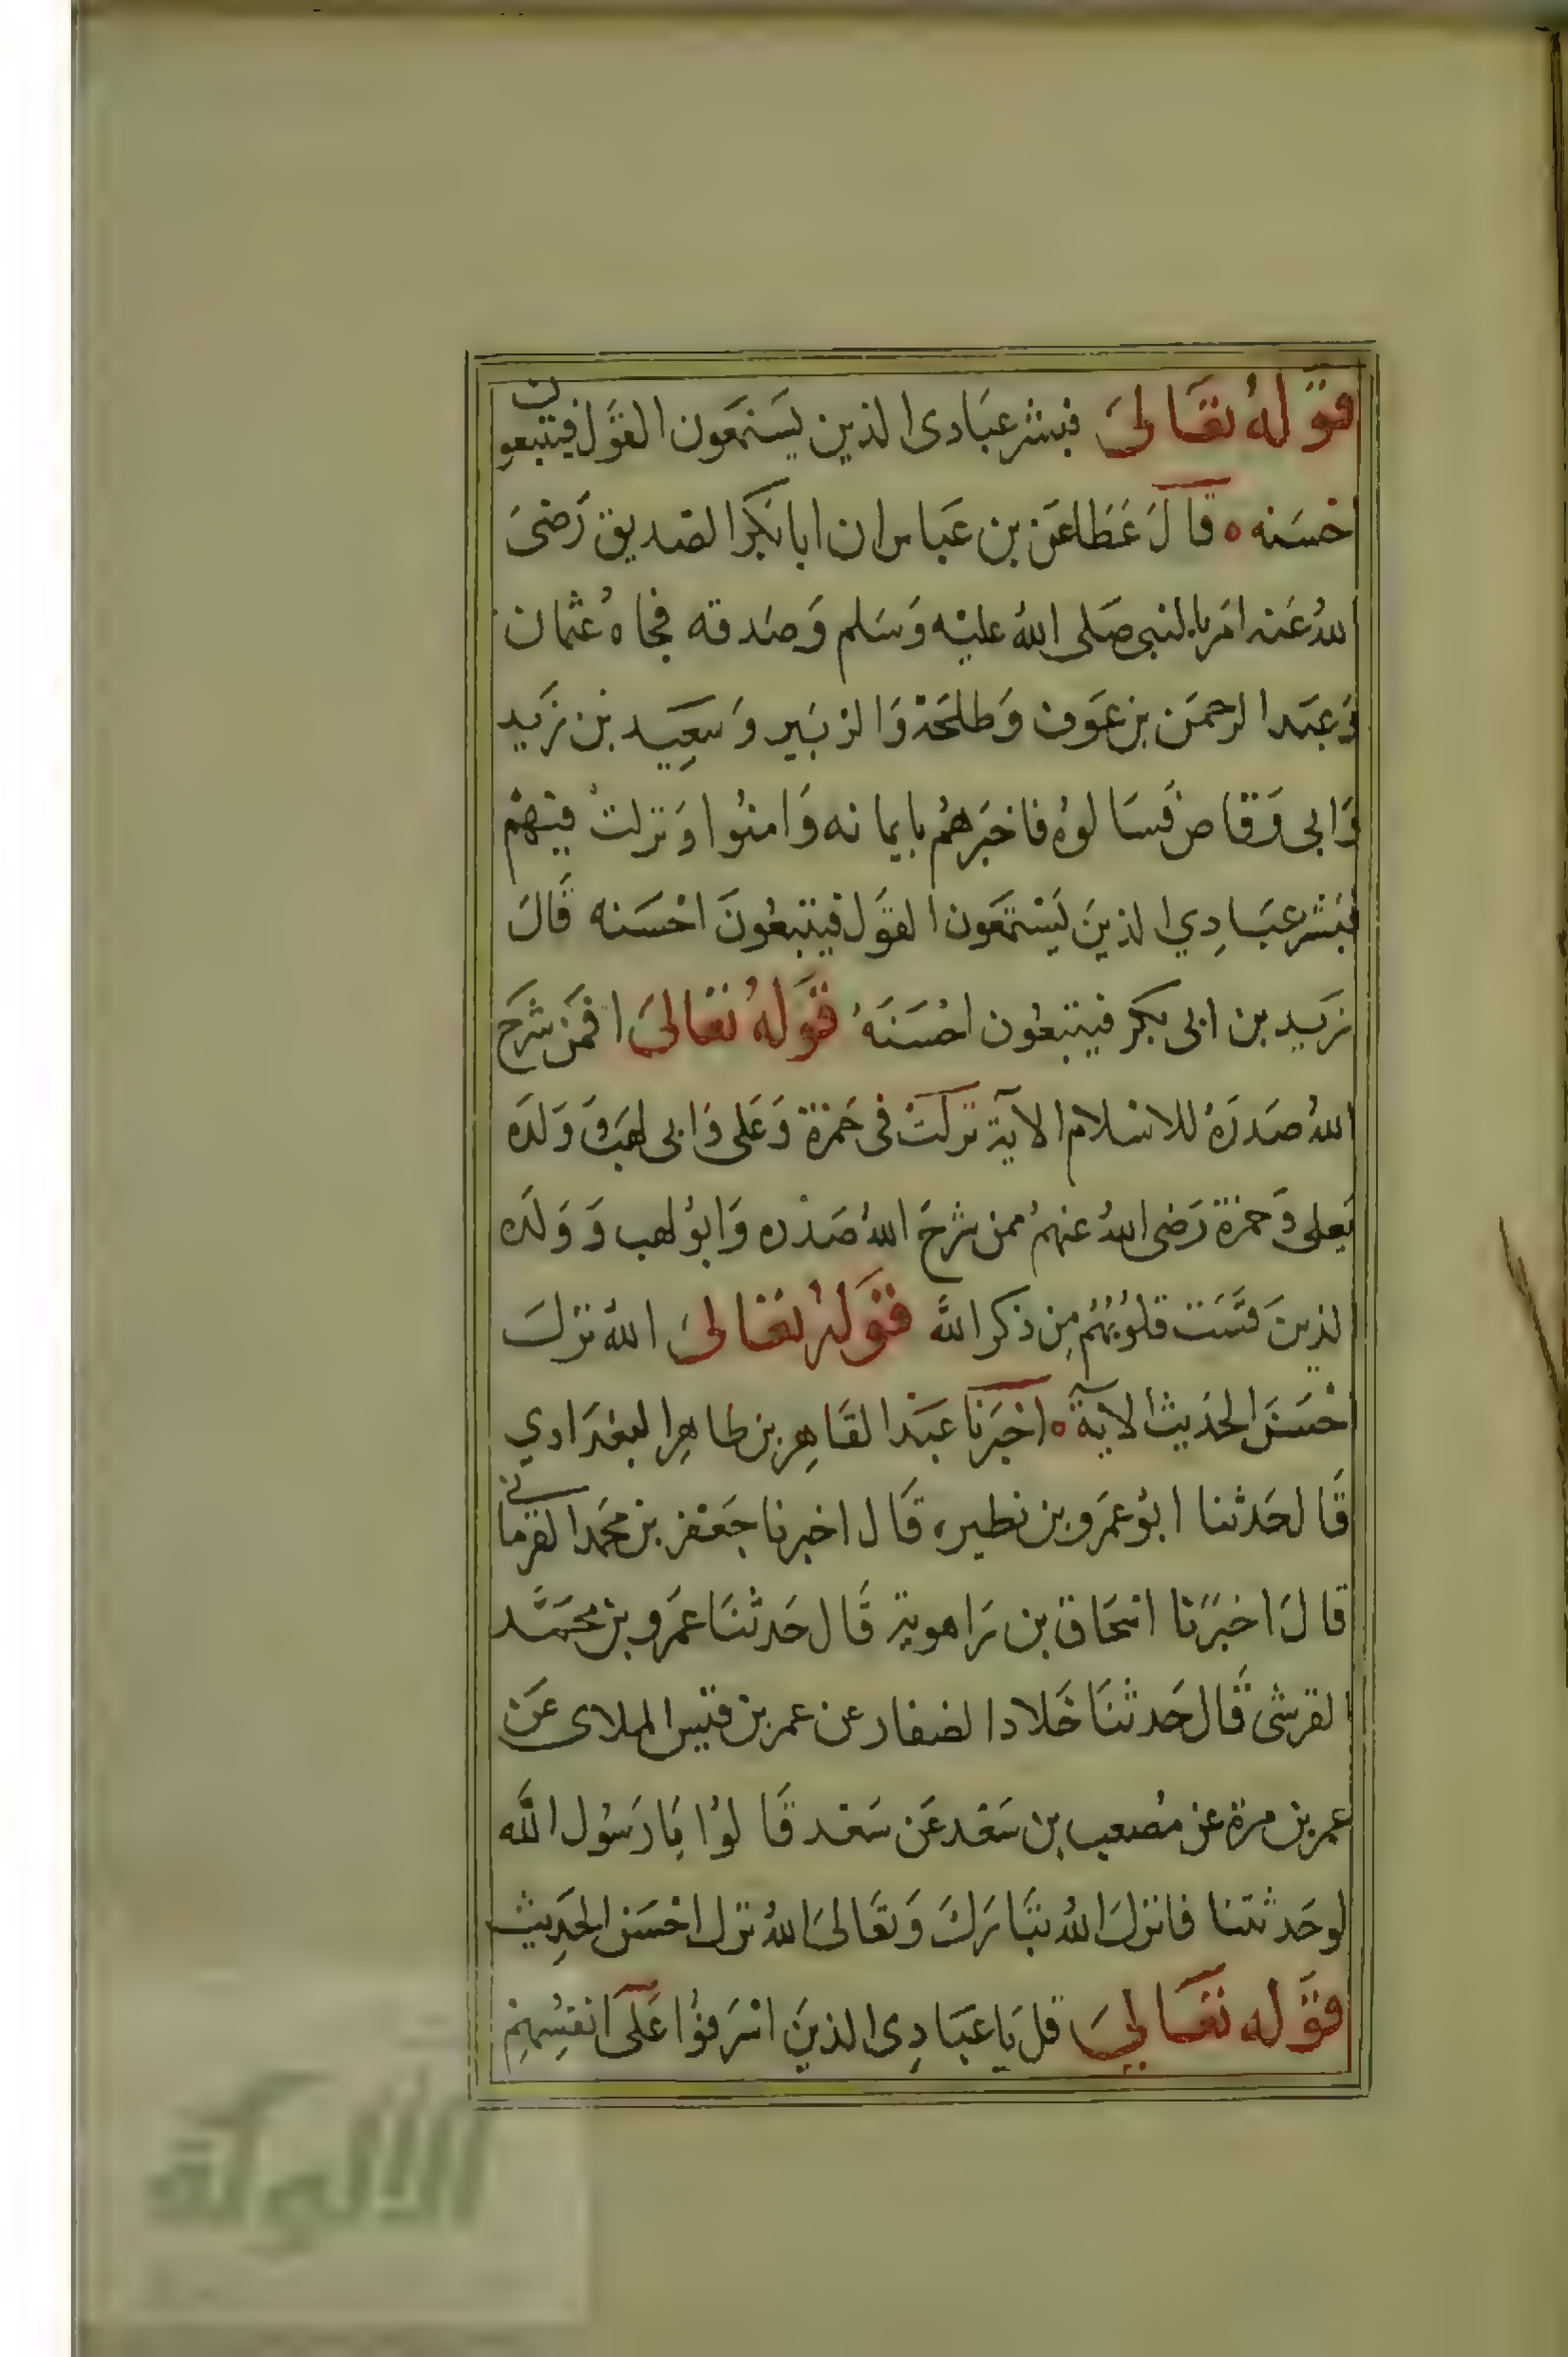 قوله تعالى فبشر عبادى الذين يستمعون القول فيتبعون
احسنه ه قال عطا عن بن عباس ان ابا بكر الصديق رضى
الله عنه امن بالنبى صلى الله عليه وسلم وصدقه فجاه عثمان
وعبد الرحمن بن عوف وطلحة والزبير وسعيد بن زيد
وابى وقاص فسالوه فاخبرهم بايمانه وامنوا ونزلت فيهم
فبشر عبادي الذين يستمعون القول فيتبعون احسنه قال
يزيد بن ابى بكر فيتبعون احسنه قوله تعالى افمن شرح
الله صدره للاسلام الآية نزلت فى حمزة وعلى وابى لهب وولده
فعلى وحمزة رضى الله عنهم ممن شرح الله صدره وابو لهب وولده
الذين قست قلوبهم من ذكر الله قوله تعالى الله نزل
احسن الحديث الآية ه اخبرنا عبد القاهر بن طاهر البغدادي
قال حدثنا ابو عمرو بن نطيره قال اخبرنا جعفر بن محمد القرمانى
قال اخبرنا اسحاق بن راهوية قال حدثنا عمرو بن محمد
القرشى قال حدثنا خلاد الصفار عن عمر بن قيس الملاى عن
عمر بن مرة عن مصعب بن سعد عن سعد قالوا يا رسول الله
لو حدثتنا فانزل الله تبارك وتعالى الله نزل احسن الحديث
قوله تعالى قل يا عبادى الذين اسرفوا على انفسهم
الألوكة